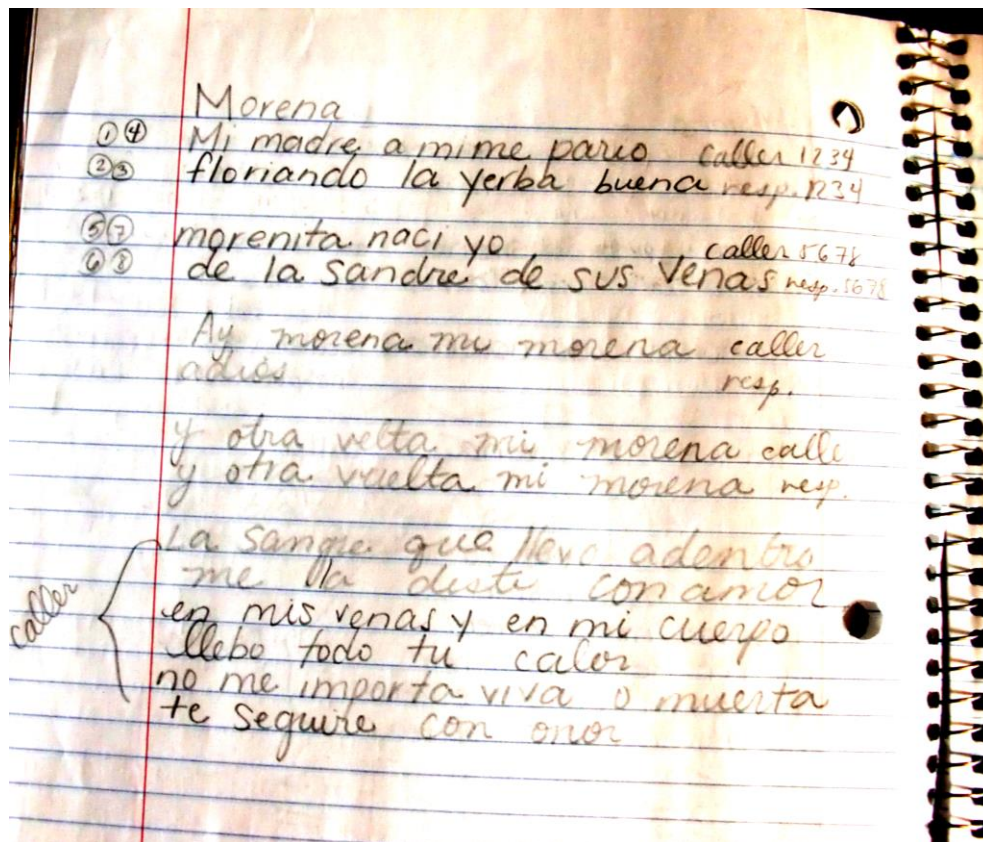 Morena
① ④ Mi madre a mi me pario caller 1234
② ③ floriando la yerba buena resp. 1234
⑤ ⑦ morenita naci yo caller 5678
⑥ ⑧ de la sandre de sus venas resp. 5678
Ay morena mi morena caller
adios resp.
y otra velta mi morena calle
y otra vuelta mi morena resp.
caller
La sangre que llevo adentro
me la diste con amor
en mis venas y en mi cuerpo
llebo todo tu calor
no me importa viva o muerta
te seguire con onor